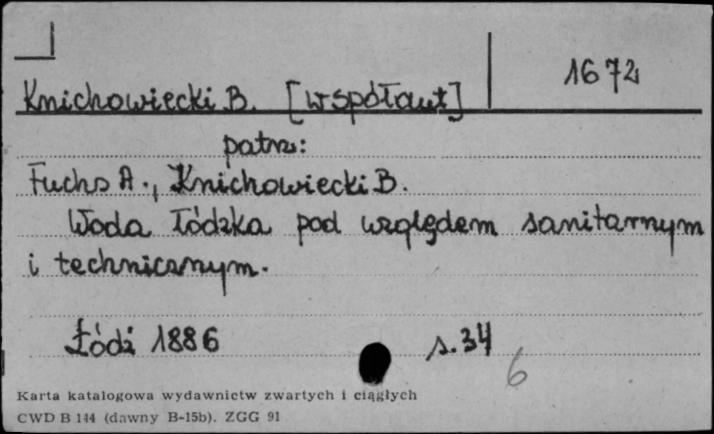 1672
Knichowiecki B. [współaut]
patrz:
Fuchs A., Knichowiecki B.
Woda łódzka pod względem sanitarnym
i technicznym.
Łódź 1886 s. 34
6
Karta katalogowa wydawnictw zwartych i ciągłych
CWD B 144 (dawny B-15b). ZGG 91